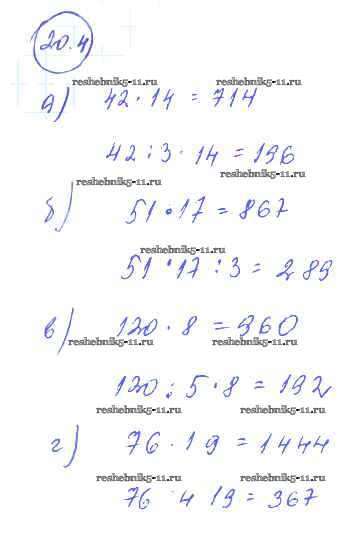 20.4
reshebnik5-11.ru
а) 42 · 14 = 714
42 : 3 · 14 = 196
reshebnik5-11.ru reshebnik5-11.ru
б) 51 · 17 = 867
reshebnik5-11.ru
51 · 17 : 3 = 289
в) 120 · 8 = 960
reshebnik5-11.ru reshebnik5-11.ru
120 : 5 · 8 = 192
reshebnik5-11.ru reshebnik5-11.ru
г) 76 · 19 = 1444
reshebnik5-11.ru reshebnik5-11.ru
76 4 19 = 367